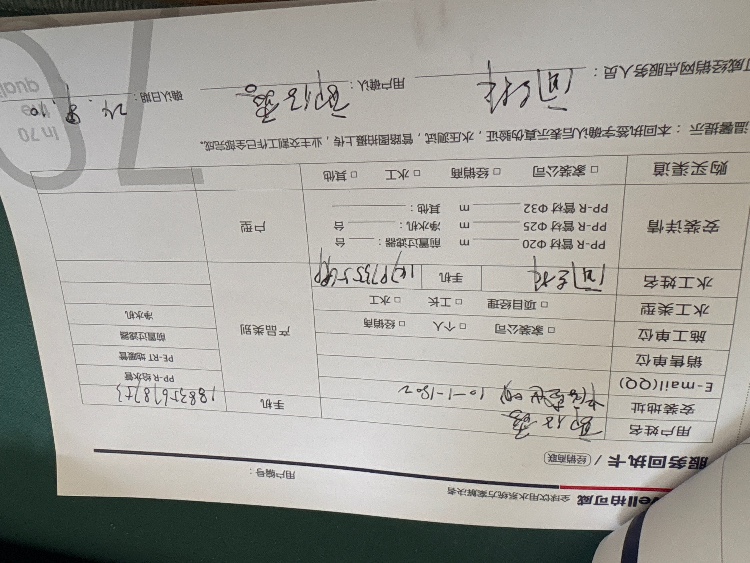 ell柏可威 全球饮用水系统方案解决者
服务回执卡 / 经销商联 用户编号：
用户姓名 手机 18835678753
安装地址 10-1-1802
E-mail(QQ)
销售单位
施工单位 □ 家装公司 □ 个人 □ 经销商
水工类型 □ 项目经理 □ 工长 □ 水工
水工姓名 手机
产品类别
PP-R 给水管
PE-RT 地暖管
前置过滤器
净水机
安装详情
PP-R 管材 Φ20 ______ m 前置过滤器：______ 台
PP-R 管材 Φ25 ______ m 净水机：______ 台
PP-R 管材 Φ32 ______ m 其他：______
户型
购买渠道 □ 家装公司 □ 经销商 □ 水工 □ 其他
温馨提示：本回执签字确认后表示真伪验证，水压测试，管路图拍摄上传，业主交割工作已全部完成。
可威经销网点服务人员： 用户确认： 确认日期：24. 8. 10
In 70
the
quali
70